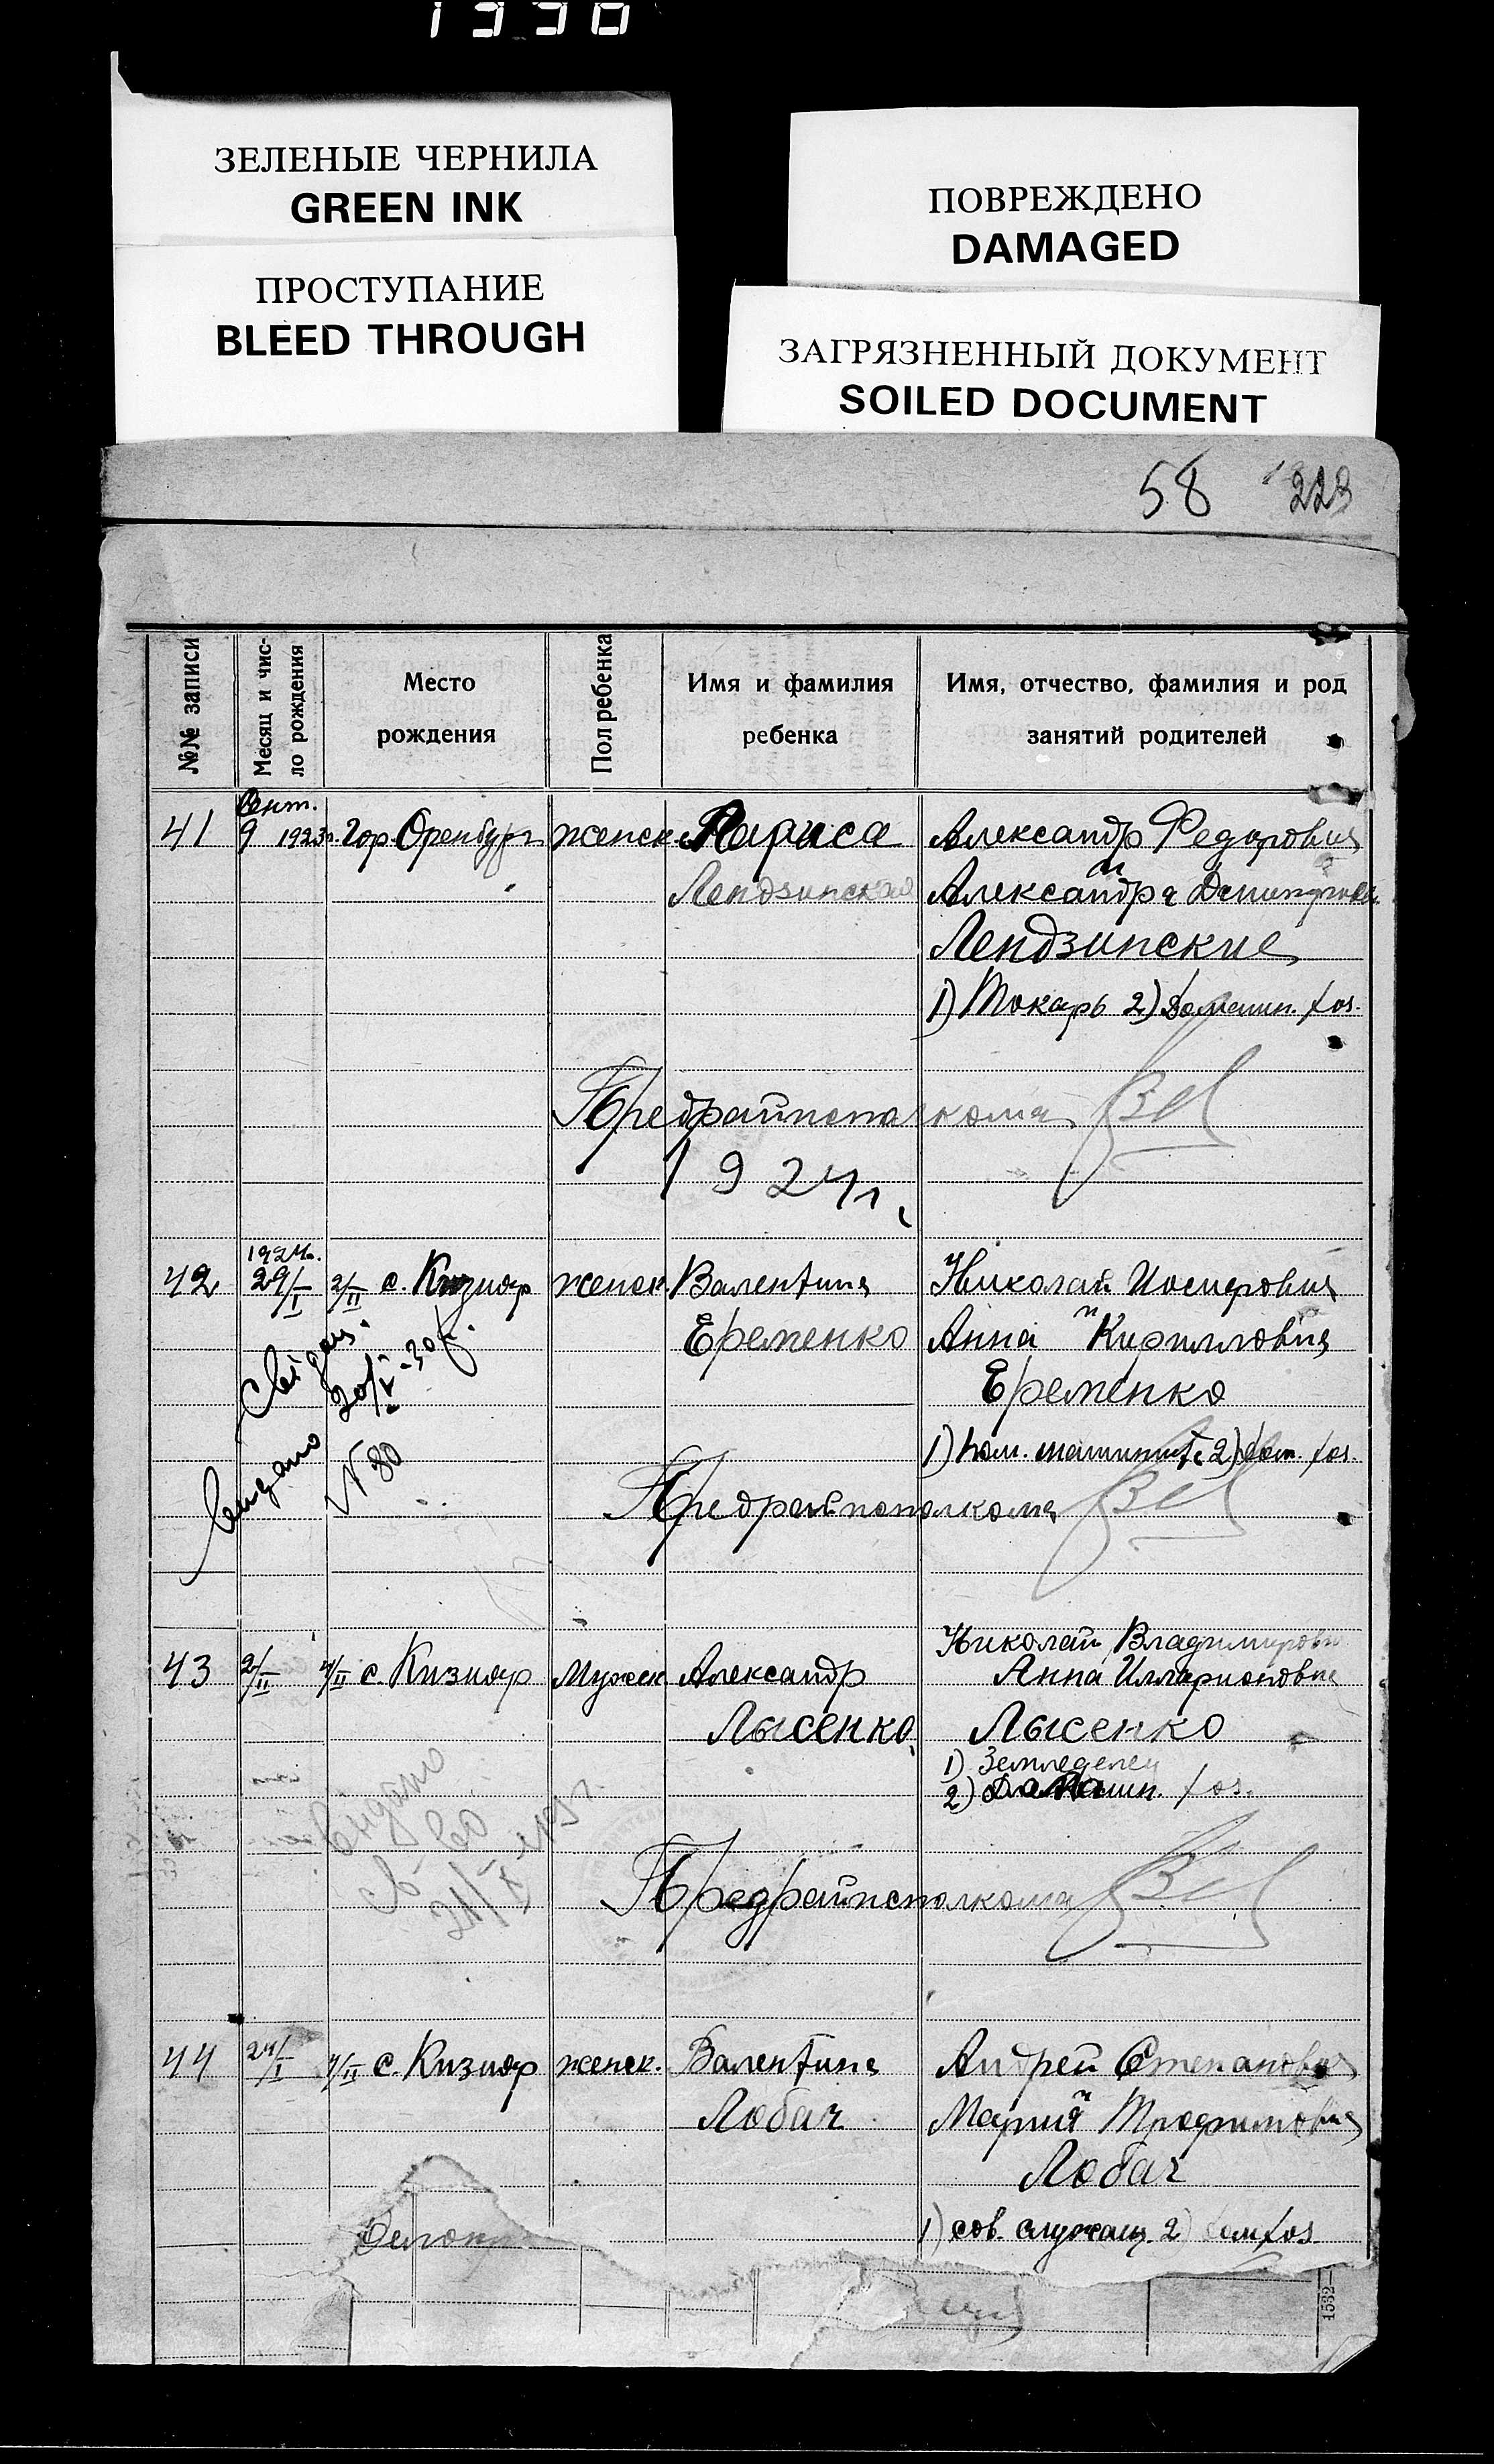 1338
ЗЕЛЕНЫЕ ЧЕРНИЛА
GREEN INK
ПРОСТУПАНИЕ
BLEED THROUGH
ПОВРЕЖДЕНО
DAMAGED
ЗАГРЯЗНЕННЫЙ ДОКУМЕНТ
SOILED DOCUMENT
58 223
№№ записи
Месяц и чис-
ло рождения
Место
рождения
Пол ребенка
Имя и фамилия
ребенка
Имя, отчество, фамилия и род
занятий родителей
Сент.
41 9 1923г. Гор. Оренбург женск. Лариса Александр Федорович
и
Лендзинская Александра Дмитровн.
Лендзинские
1) Токарь 2) Домашн. хоз.
Предрайисполкома
1924 г.
1924г.
42 29/I 2/II с. Кизляр женск. Валентина Николай Иосифович
и
Еременко Анна Кирилловна
Еременко
Свид.
20/V-30г.
1) пом. машиниста 2) дом. хоз.
выдано
N 80
Предрайисполкома
Николай Владимирович
43 2/II 4/II с. Кизляр Мужск. Александр Анна Илларионовна
Лысенко Лысенко
1) Земледелец
2) Домашн. хоз.
Выдано
св-во
21/X
Предрайисполкома
44 24/I 4/II с. Кизляр женск. Валентина Андрей Степанович
и
Лобач Мария Трофимовна
Лобач
1) сов. служащ. 2) дом хоз.
1532—